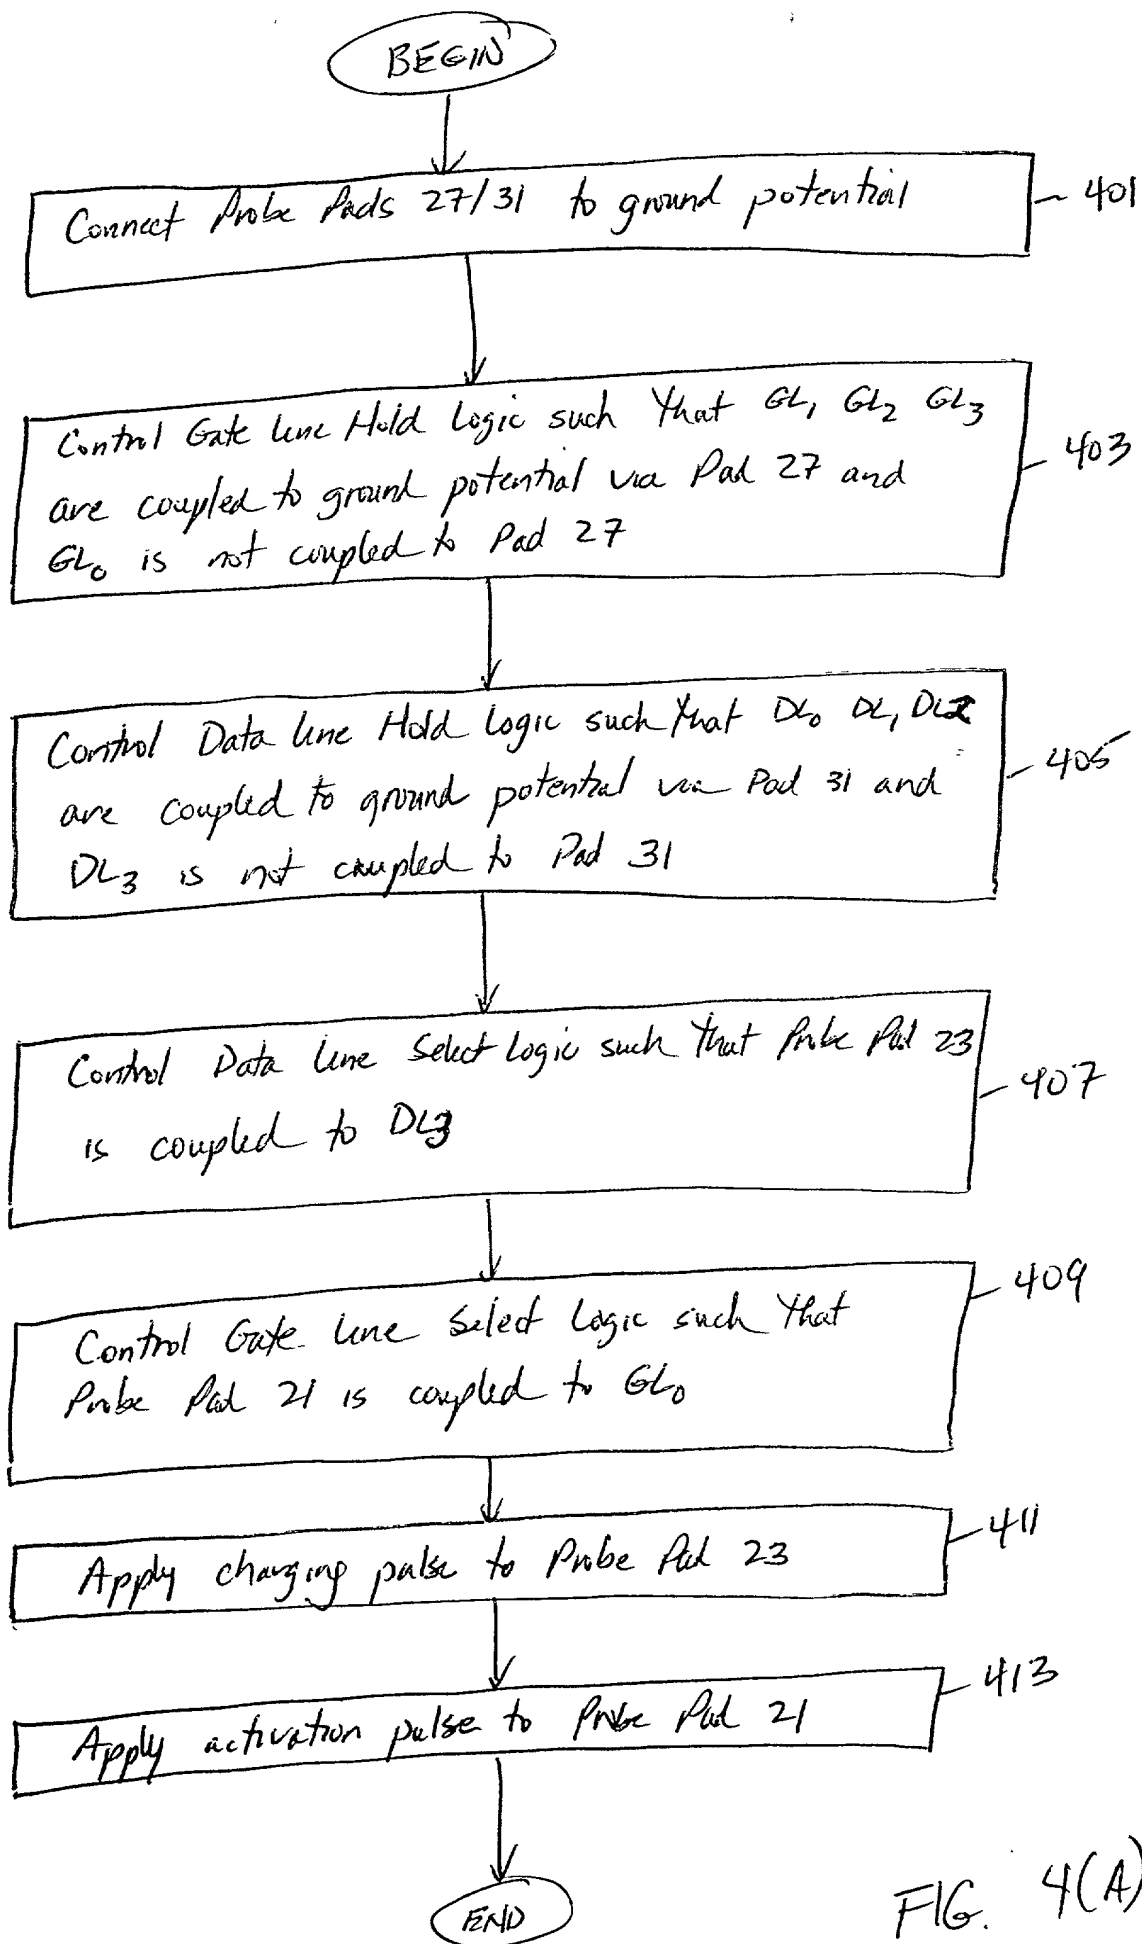 BEGIN
Connect Probe Pads 27/31 to ground potential
401
Control Gate line Hold Logic such that GL1 GL2 GL3
are coupled to ground potential via Pad 27 and
GL0 is not coupled to Pad 27
403
Control Data line Hold Logic such that DL0 DL1 DL2
are coupled to ground potential via Pad 31 and
DL3 is not coupled to Pad 31
405
Control Data line Select Logic such that Probe Pad 23
is coupled to DL3
407
409
Control Gate line Select Logic such that
Probe Pad 21 is coupled to GL0
411
Apply charging pulse to Probe Pad 23
413
Apply activation pulse to Probe Pad 21
END
FIG. 4(A)